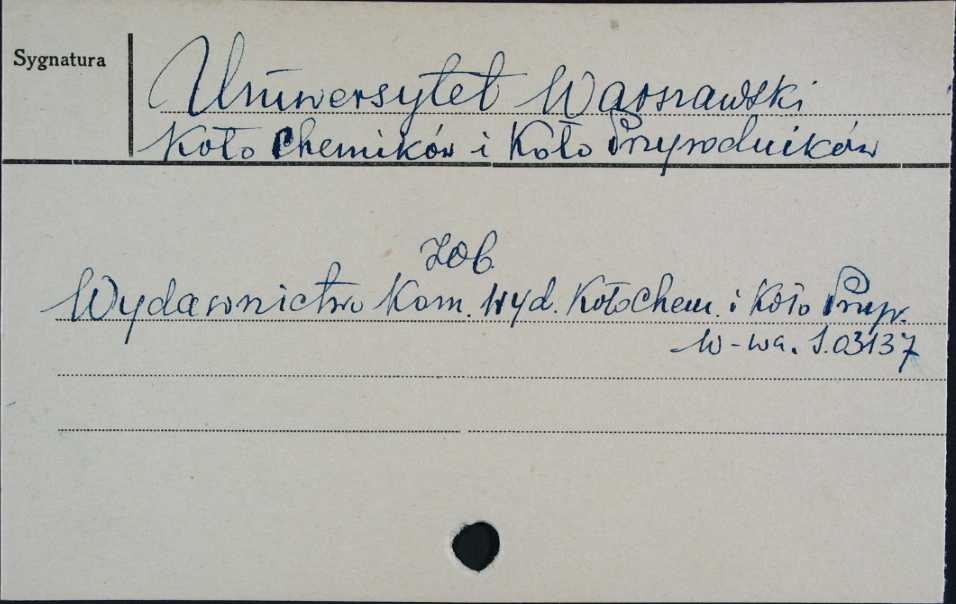 Sygnatura
Uniwersytet Warszawski
Koło Chemików i Koło Przyrodników
Zob.
Wydawnictwo Kom. Wyd. Koło Chem. i Koło Przyr.
W-wa. S.03137